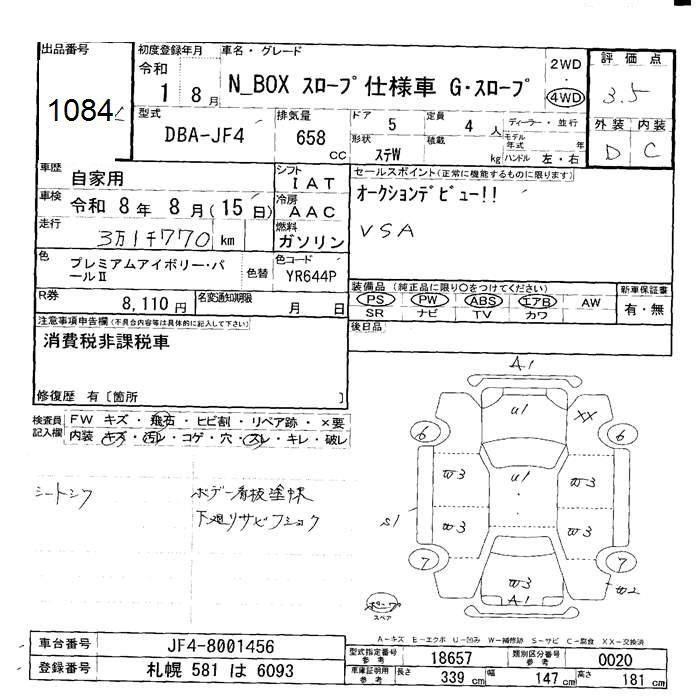 出品番号
1084
初度登録年月
令和
1 8月
車名・グレード
N_BOX スロープ 仕様車 G・スロープ
2WD
・
4WD
評価点
3.5
外装 内装
D C
型式
DBA-JF4
排気量
658
cc
ドア
5
定員
4 人
形状
ステW
積載
kg
ディーラー・並行
モデル年式 年
ハンドル 左・右
車歴
自家用
シフト
I A T
車検
令和 8年 8月(15日)
冷房
A A C
走行
3万1千770 km
燃料
ガソリン
セールスポイント(正常に機能するものに限ります)
オークションデビュー!!
VSA
色
プレミアムアイボリー・パールⅡ
色替
色コード
YR644P
R券
8,110円
名変通知期限
月 日
装備品(純正品に限り○をつけてください)
PS PW ABS エアB AW
SR ナビ TV カワ
新車保証書
有・無
後日品
注意事項申告欄(不具合内容等は具体的に記入して下さい)
消費税非課税車
修復歴 有〔箇所 〕
検査員記入欄
FW キズ・飛石・ヒビ割・リペア跡・×要
内装 キズ・汚レ・コゲ・穴・スレ・キレ・破レ
シートシワ
ボデー看板塗抹
下廻りサビフショク
A1
U1
XX
6
6
W3
W3
U1
W3
W3
S1
7
7
W3
W2
A1
スペア
A-キズ E-エクボ U-凹み W-補修跡 S-サビ C-腐食 XX-交換済
車台番号
JF4-8001456
登録番号
札幌 581 は 6093
型式指定番号
参考
18657
類別区分番号
参考
0020
車庫証明用
参考
長さ 339 cm
幅 147 cm
高さ 181 cm